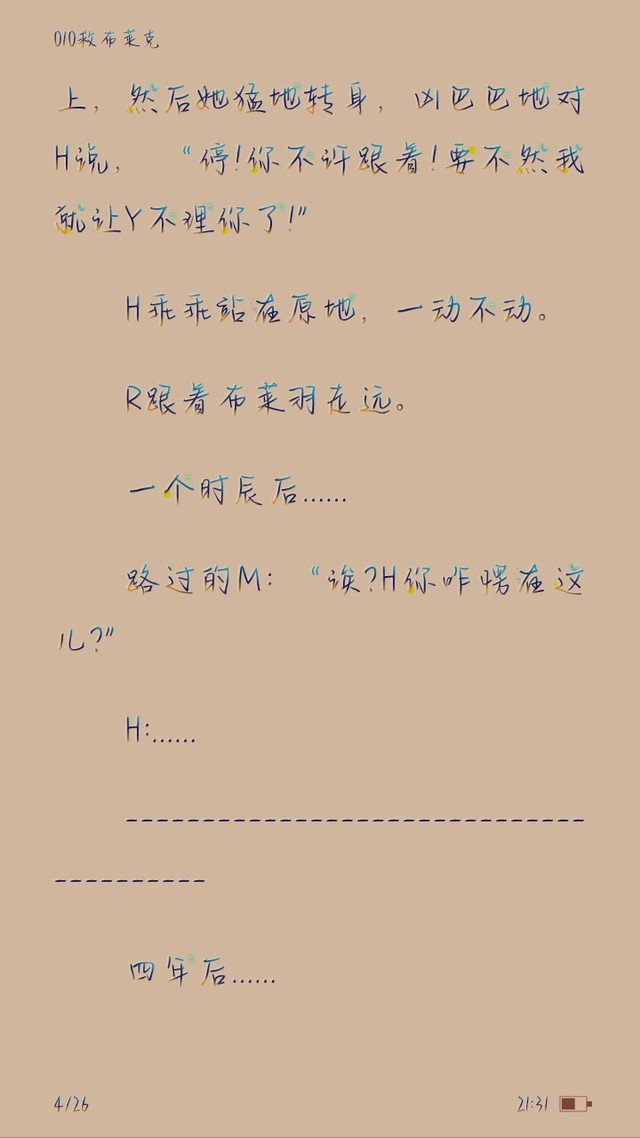 010救布莱克
上，然后她猛地转身，凶巴巴地对
H说，“停!你不许跟着!要不然我
就让Y不理你了!”
H乖乖站在原地，一动不动。
R跟着布莱羽走远。
一个时辰后……
路过的M：“诶?H你咋愣在这
儿?”
H:……
------------------------------
----------
四年后……
4/26
21:31